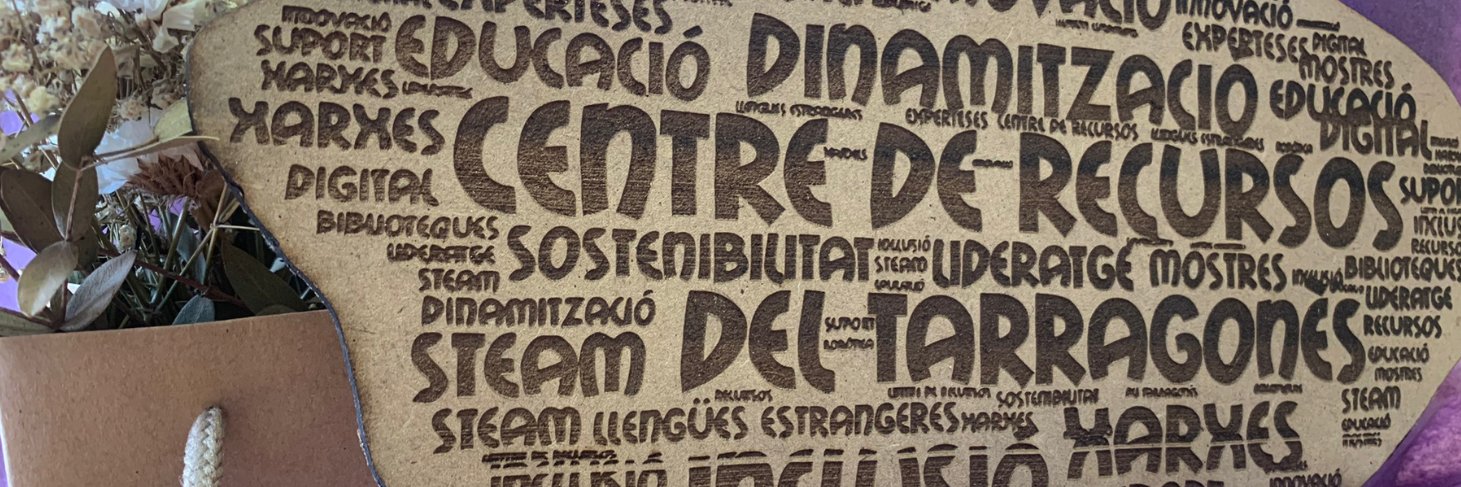 EXPERTESES INNOVACIÓ INNOVACIÓ
INNOVACIÓ EXPERTESES DIGITAL
SUPORT EDUCACIÓ DINAMITZACIÓ MOSTRES
XARXES EDUCACIÓ
LLENGÜES ESTRANGERES DIGITAL
XARXES CENTRE DE RECURSOS
EXPERTESES CENTRE DE RECURSOS LLENGÜES ESTRANGERES
DIGITAL SUPORT
BIBLIOTEQUES
LIDERATGE SOSTENIBILITAT INCLUSIÓ LIDERATGE MOSTRES BIBLIOTEQUES
STEAM STEAM INCLUSIÓ
LIDERATGE
DINAMITZACIÓ DEL TARRAGONÈS RECURSOS
SUPORT
ROBÒTICA
STEAM EDUCACIÓ
MOSTRES
RECURSOS CENTRE DE RECURSOS SOSTENIBILITAT STEAM
STEAM LLENGÜES ESTRANGERES XARXES XARXES EDUCACIÓ
MOSTRES
CENTRE DE RECURSOS
INCLUSIÓ INCLUSIÓ INNOVACIÓ